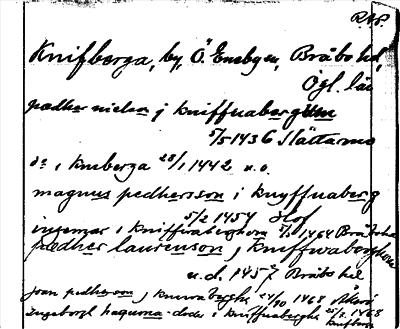 R.A.P.
Knifberga, by, Ö. Eneby sn, Bråbo hd,
Ögl. län
pædher nielsa j kniffuabergum
5/5 1436 Slättarna
ds, i kneberga 28/1 1442 u.o.
magnus pedhersson i knyffuaberg
5/2 1454 Hof
ingemar i kniffuaberghom 5/5 1454 Bråbohæ
pædher laurensson, j kniffwaberghom
u.d. 1457 Bråbo hd
joan pedherson j knwabergh 24/10 1468
ingeborgh haquons doder i kniffuaberghe 25/2 1468